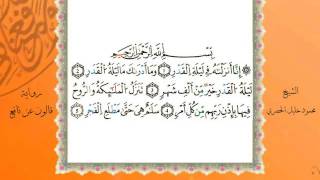 بِسْمِ اللَّهِ الرَّحْمَٰنِ الرَّحِيمِ
إِنَّا أَنزَلْنَٰهُ فِي لَيْلَةِ الْقَدْرِ ١ وَمَا أَدْرَىٰكَ مَا لَيْلَةُ الْقَدْرِ ٢
لَيْلَةُ الْقَدْرِ خَيْرٌ مِّنْ أَلْفِ شَهْرٍ ٣ تَنَزَّلُ الْمَلَٰٓئِكَةُ وَالرُّوحُ
فِيهَا بِإِذْنِ رَبِّهِم مِّن كُلِّ أَمْرٍ ٤ سَلَٰمٌ هِيَ حَتَّىٰ مَطْلَعِ الْفَجْرِ ٥
الشيخ
محمود خليل الحصري
رواية
قالون عن نافع